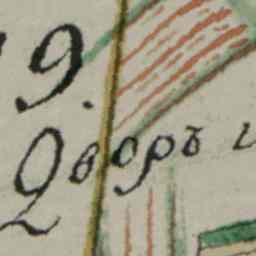 9.
Дворъ